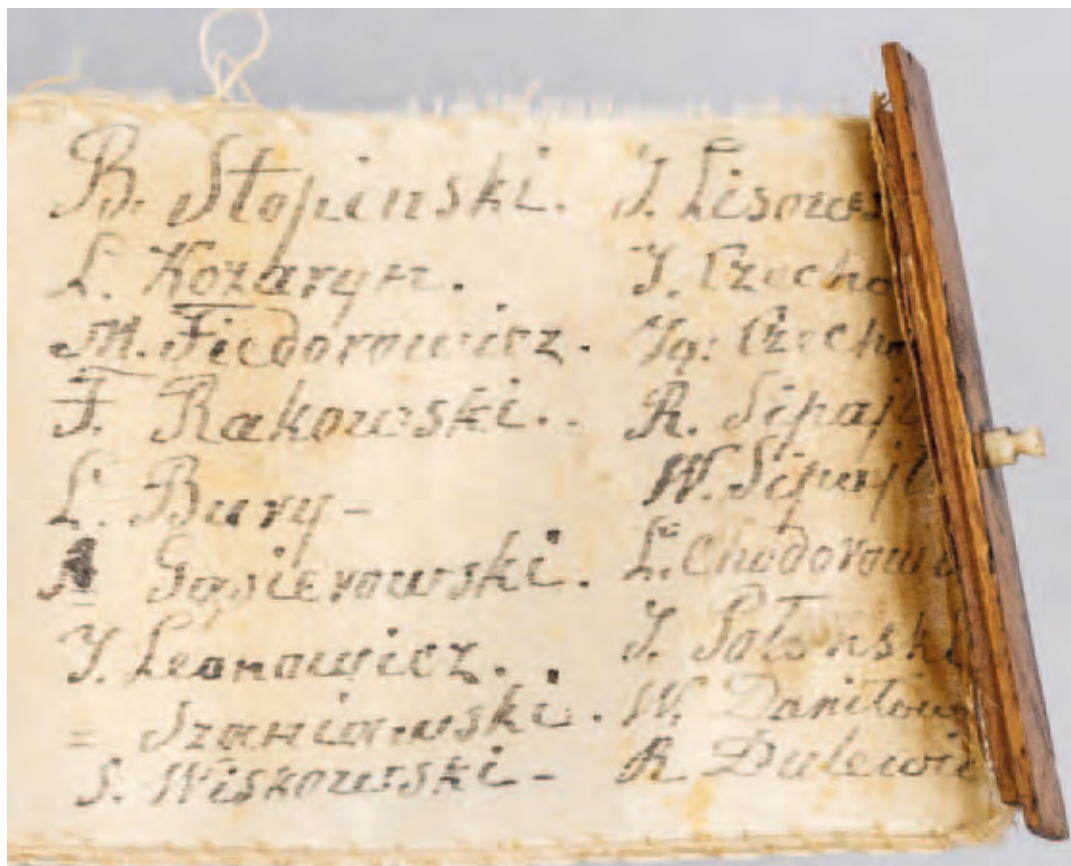 B. Stopinski.
L. Kozaryn.
M. Fiedorowicz.
F. Rakowski..
L. Bury-
Gąsierowski.
J. Leonowicz..
= Szaniawski.
S. Wiskowski-
J. Lisows
J. Czecho
Ig: Czecho
R. Sipaj
W. Sipaj
L. Chodorow
J. Połonsk
W. Daniłow
R Dulewi